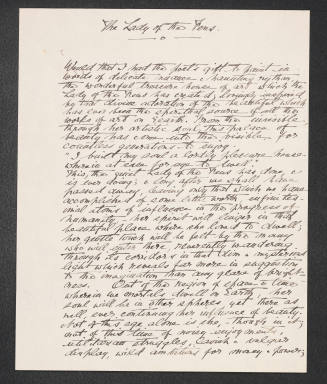 The Lady of the Fens.
Would that I had the poet's gift to paint in
words of delicate nuance & haunting rhythm
the wonderful treasure house of art which the
Lady of the Fens has created, lovingly inspired
by that divine adoration of the beautiful which
has ever been the spiritual source of all the
works of art on Earth. From the invisible
through her artistic soul this palace of
beauty has come into the visible for
countless generations to enjoy.
I built my soul a lordly pleasure house
wherein at ease for aye to dwell.
This, the quiet Lady of the Fens has done &
is ever doing; & long after we shall have
passed away, leaving only that which we have
accomplished of some little worth, infinites-
imal atoms of influence in the progress of
humanity, her spirit will linger in this
beautiful place where she loved to dwell;
her gentle touch will be felt by the many
who will enter there, reverently wandering
through its corridors in that dim & mysterious
light which reveals far more in suggestion
to the imagination than any glare of bright-
ness. Out of the region of space & time
wherein we mortals dwell on Earth, her
soul will be in other spheres, yet there as
will ever continuing her influence of beauty.
Not of this age alone is she, though in it;
not of this time of money enjoyment,
utilitarian struggles, lavish & vulgar
display, wild ambitions for money & power;